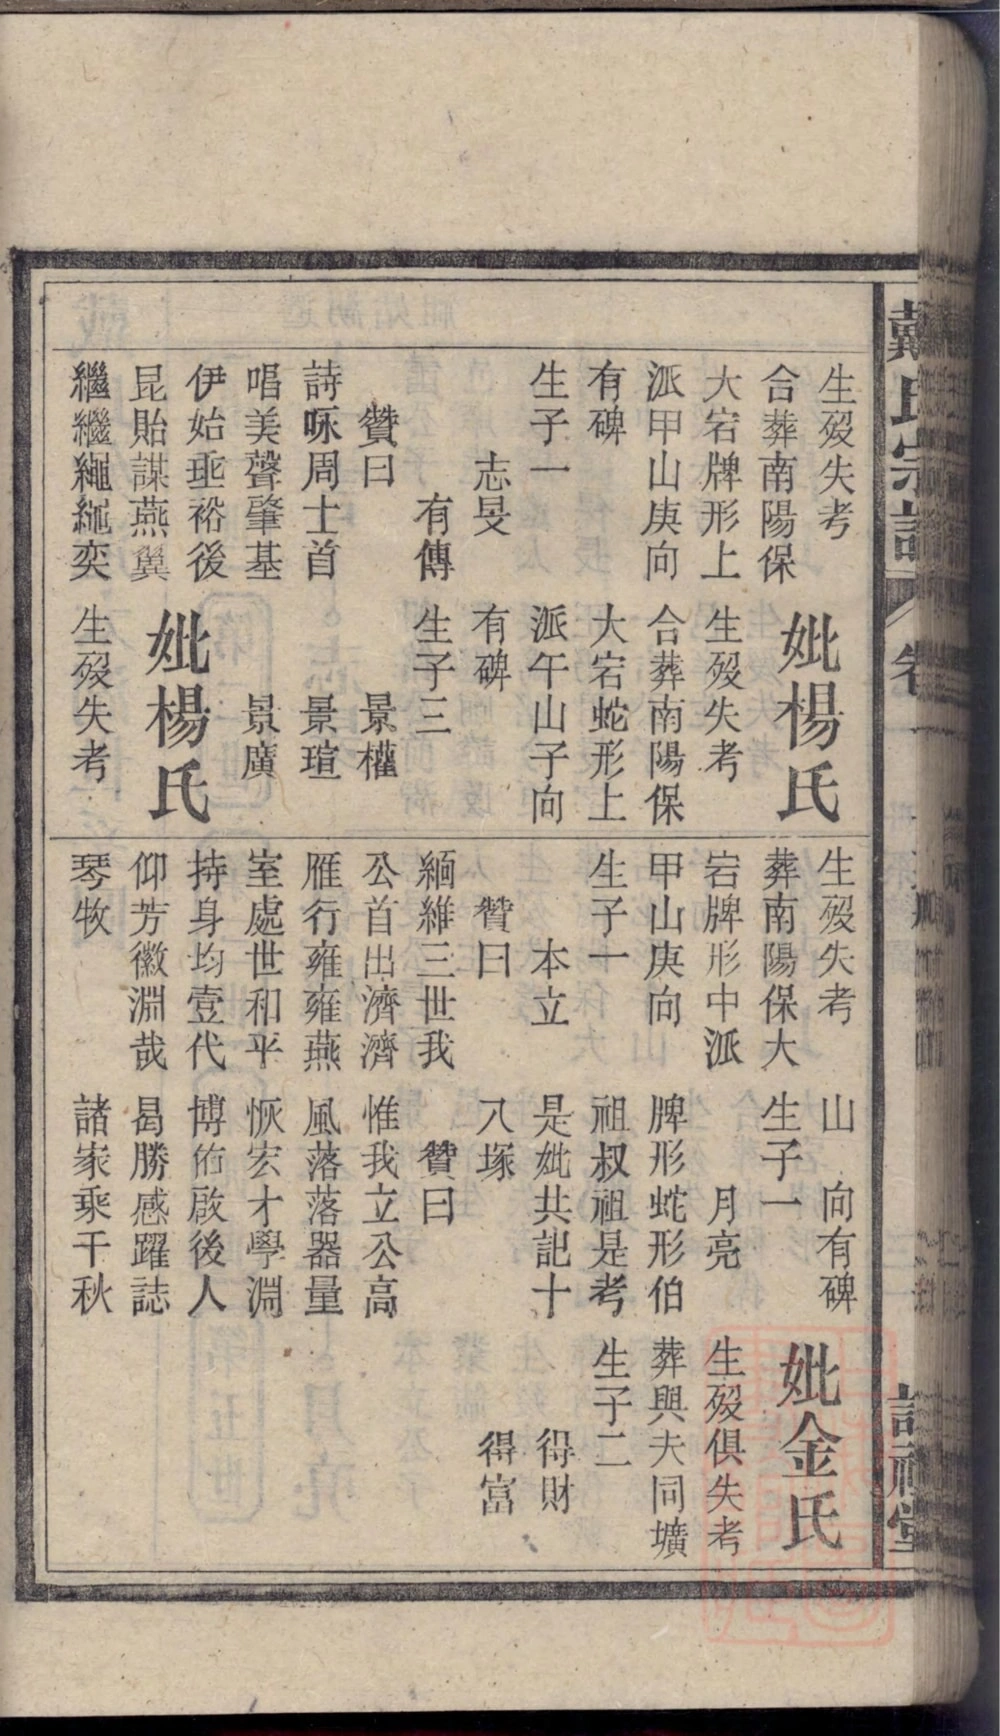 戴氏宗譜
卷一
生歿失考
合葬南陽保
大宕牌形上
派甲山庚向
有碑
生子一
志旻
有傳
贊曰
詩咏周士首
唱美聲肇基
伊始垂裕後
昆貽謀燕翼
繼繼繩繩奕
妣楊氏
生歿失考
合葬南陽保
大宕蛇形上
派午山子向
有碑
生子三
景權
景瑄
景廣
妣楊氏
生歿失考
生歿失考
葬南陽保大
宕牌形中派
甲山庚向
生子一
本立
贊曰
緬維三世我
公首出濟濟
雁行雍雍燕
室處世和平
持身均壹代
仰芳徽淵哉
琴牧
山　向有碑
生子一
月亮
脾形蛇形伯
祖叔祖是考
是妣共記十
八塚
贊曰
惟我立公高
風落落器量
恢宏才學淵
博佑啟後人
曷勝感躍誌
諸家乘千秋
妣金氏
生歿俱失考
葬與夫同壙
生子二
得財
得富